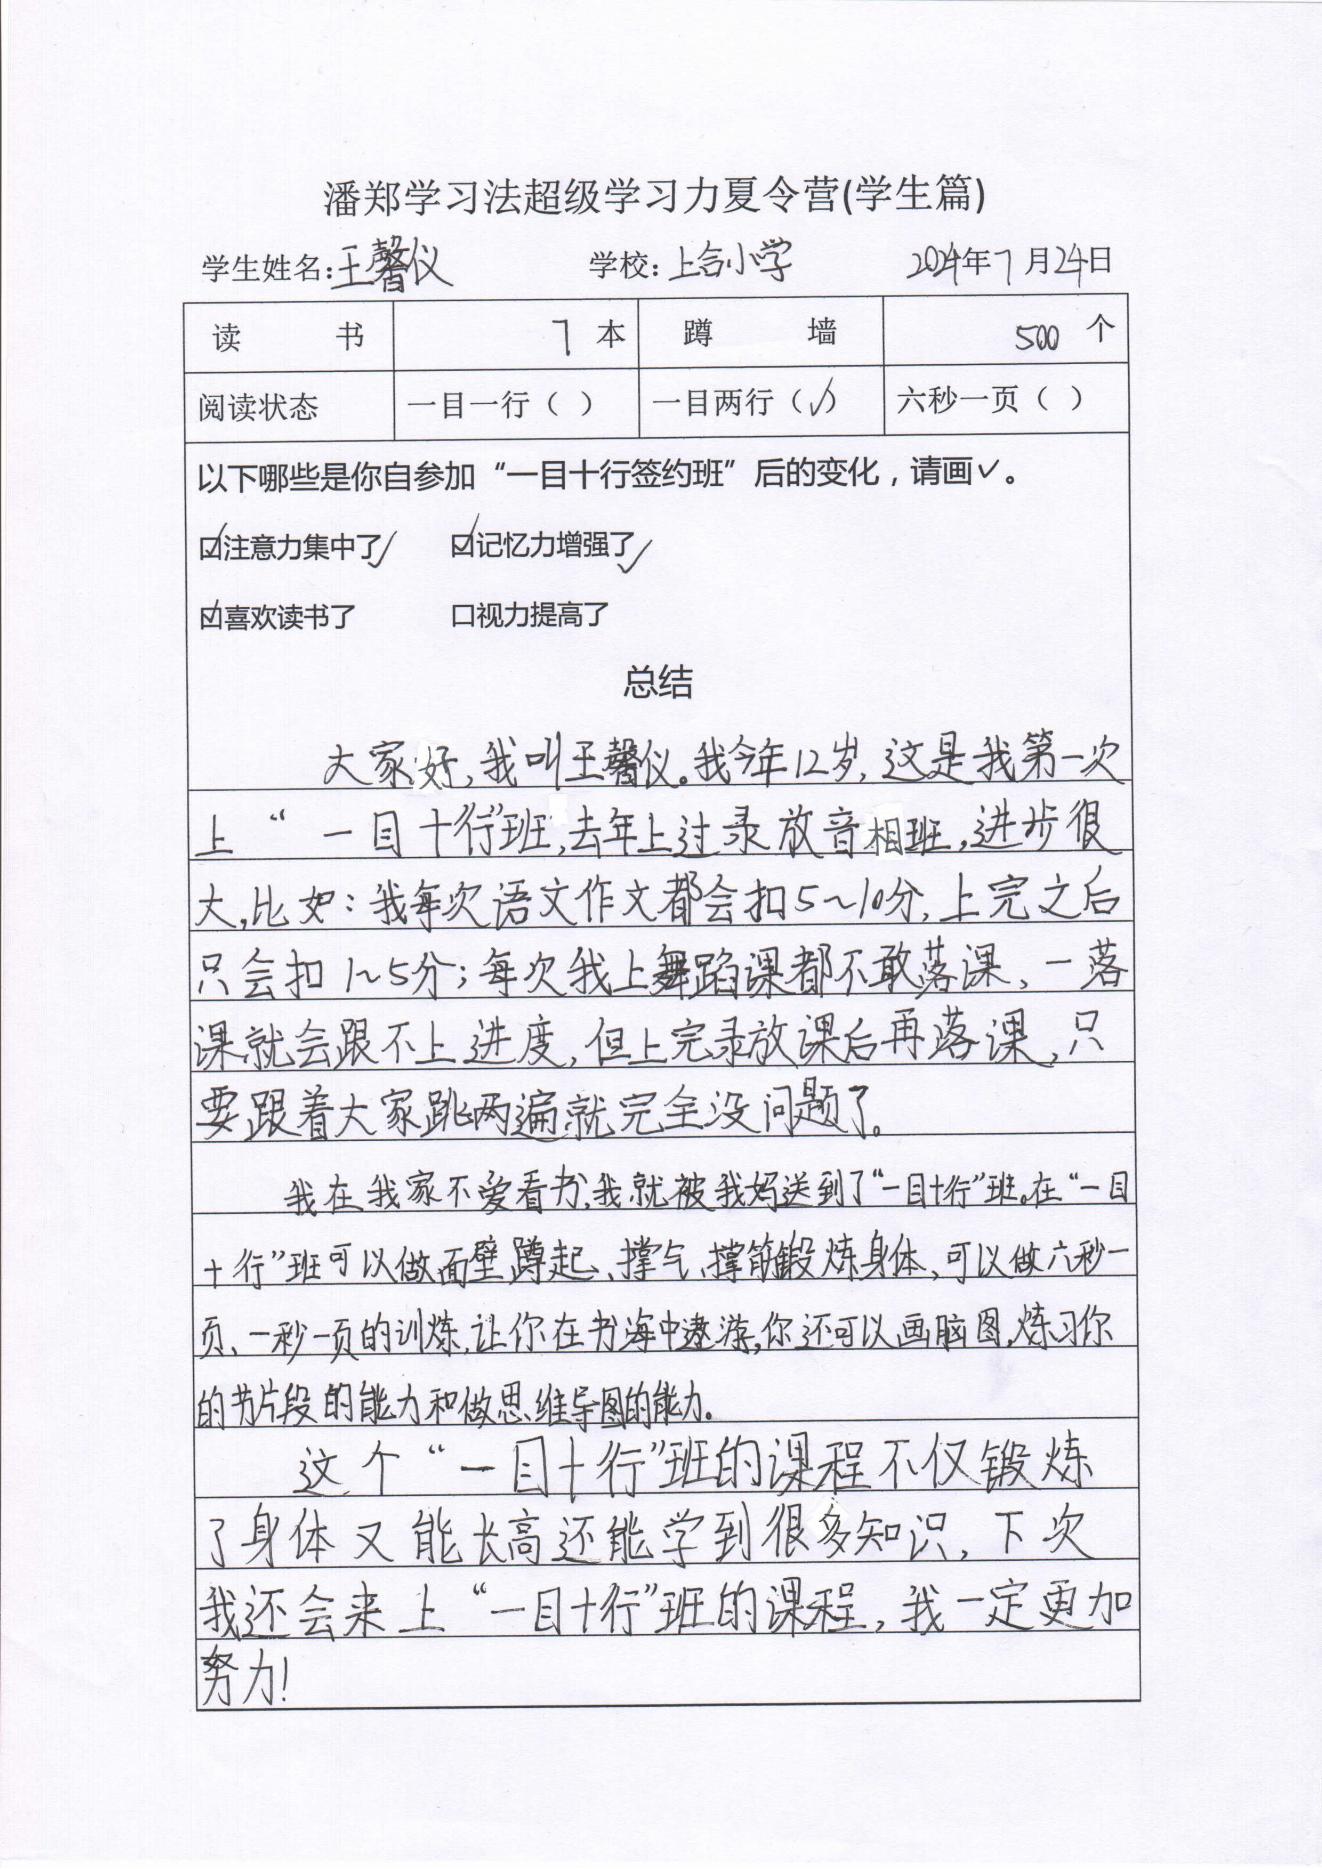 潘郑学习法超级学习力夏令营(学生篇)
学生姓名:王馨仪 学校:上合小学 2024年7月24日
读 书 7 本 蹲 墙 500 个
阅读状态 一目一行( ) 一目两行(✓) 六秒一页( )
以下哪些是你自参加“一目十行签约班”后的变化，请画✓。
☑注意力集中了✓ ☑记忆力增强了✓
☑喜欢读书了 口视力提高了
总结
大家好,我叫王馨仪。我今年12岁,这是我第一次
上“一目十行”班,去年上过录放音相班,进步很
大,比如:我每次语文作文都会扣5~10分,上完之后
只会扣1~5分;每次我上舞蹈课都不敢落课、一落
课就会跟不上进度,但上完录放课后再落课,只
要跟着大家跳两遍就完全没问题了。
我在我家不爱看书,我就被我妈送到了“一目十行”班。在“一目
十行”班可以做面壁蹲起、撑气、撑筋锻炼身体,可以做六秒一
页、一秒一页的训炼,让你在书海中遨游,你还可以画脑图,炼习你
的书片段的能力和做思维导图的能力。
这个“一目十行”班的课程不仅锻炼
了身体又能长高还能学到很多知识,下次
我还会来上“一目十行”班的课程,我一定更加
努力!